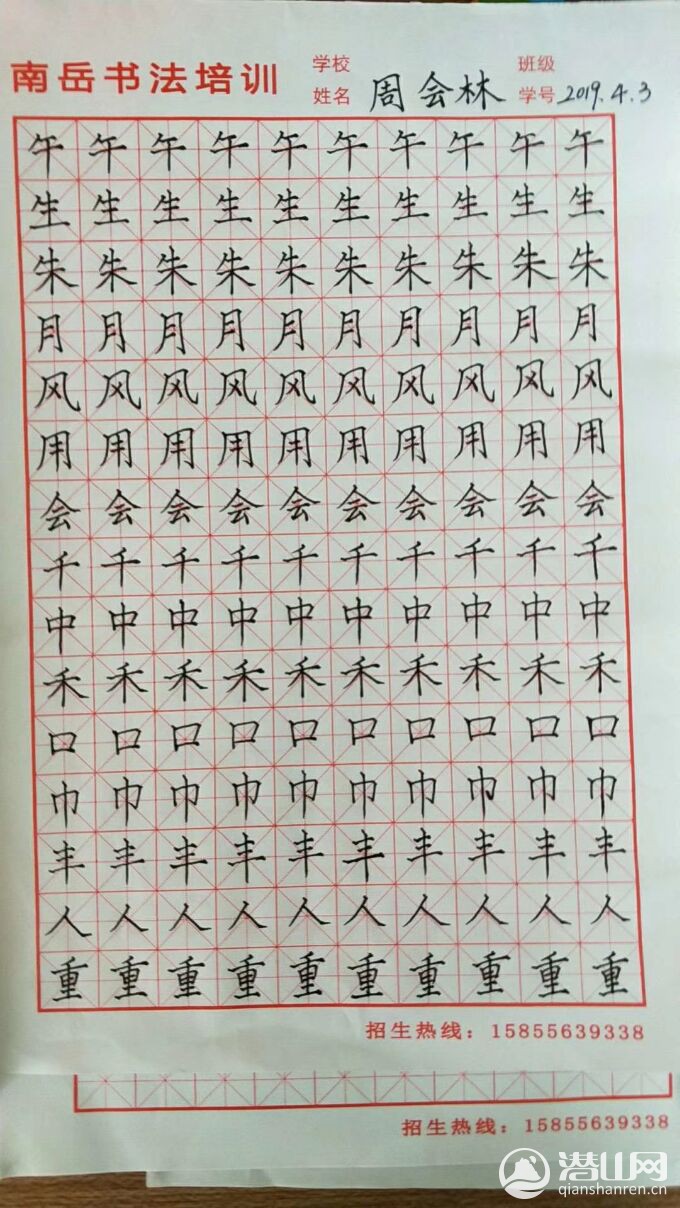 学校 班级
南岳书法培训 姓名 周会林 学号 2019.4.3
午午午午午午午午午午
生生生生生生生生生生
朱朱朱朱朱朱朱朱朱朱
月月月月月月月月月月
风风风风风风风风风风
用用用用用用用用用用
会会会会会会会会会会
千千千千千千千千千千
中中中中中中中中中中
禾禾禾禾禾禾禾禾禾禾
口口口口口口口口口口
巾巾巾巾巾巾巾巾巾巾
丰丰丰丰丰丰丰丰丰丰
人人人人人人人人人人
重重重重重重重重重重
招生热线：15855639338
招生热线：15855639338
潜山网
qianshanren.cn